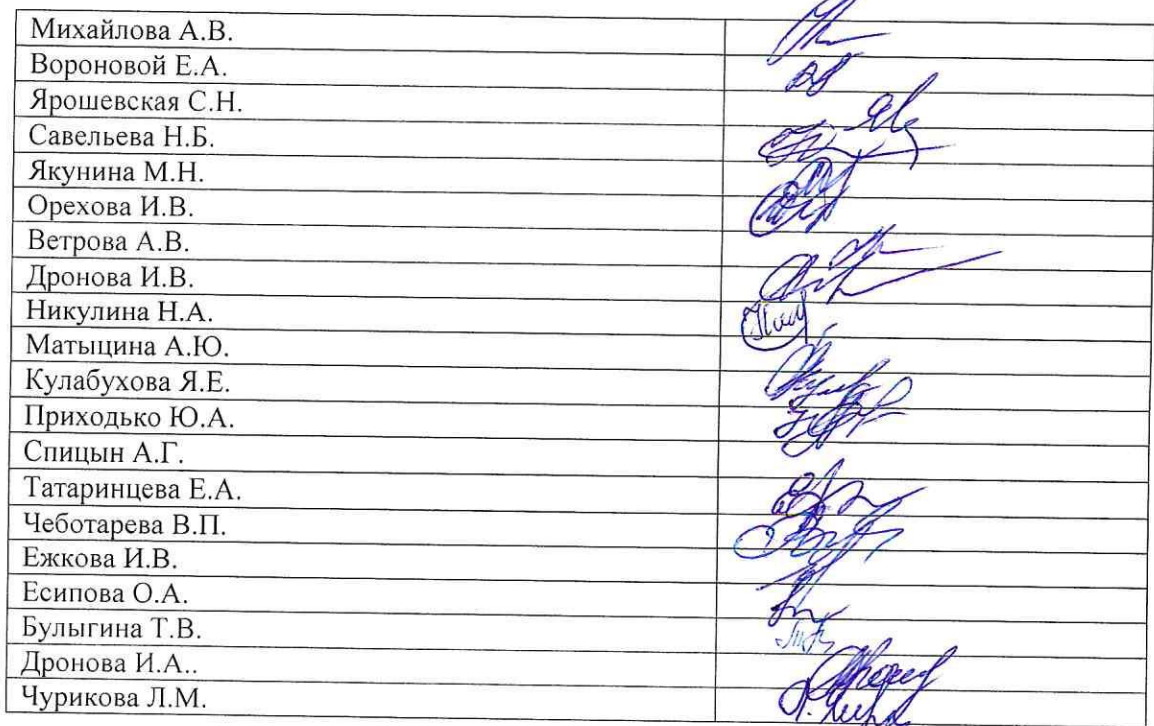 Михайлова А.В.
Вороновой Е.А.
Ярошевская С.Н.
Савельева Н.Б.
Якунина М.Н.
Орехова И.В.
Ветрова А.В.
Дронова И.В.
Никулина Н.А.
Матыцина А.Ю.
Кулабухова Я.Е.
Приходько Ю.А.
Спицын А.Г.
Татаринцева Е.А.
Чеботарева В.П.
Ежкова И.В.
Есипова О.А.
Булыгина Т.В.
Дронова И.А..
Чурикова Л.М.